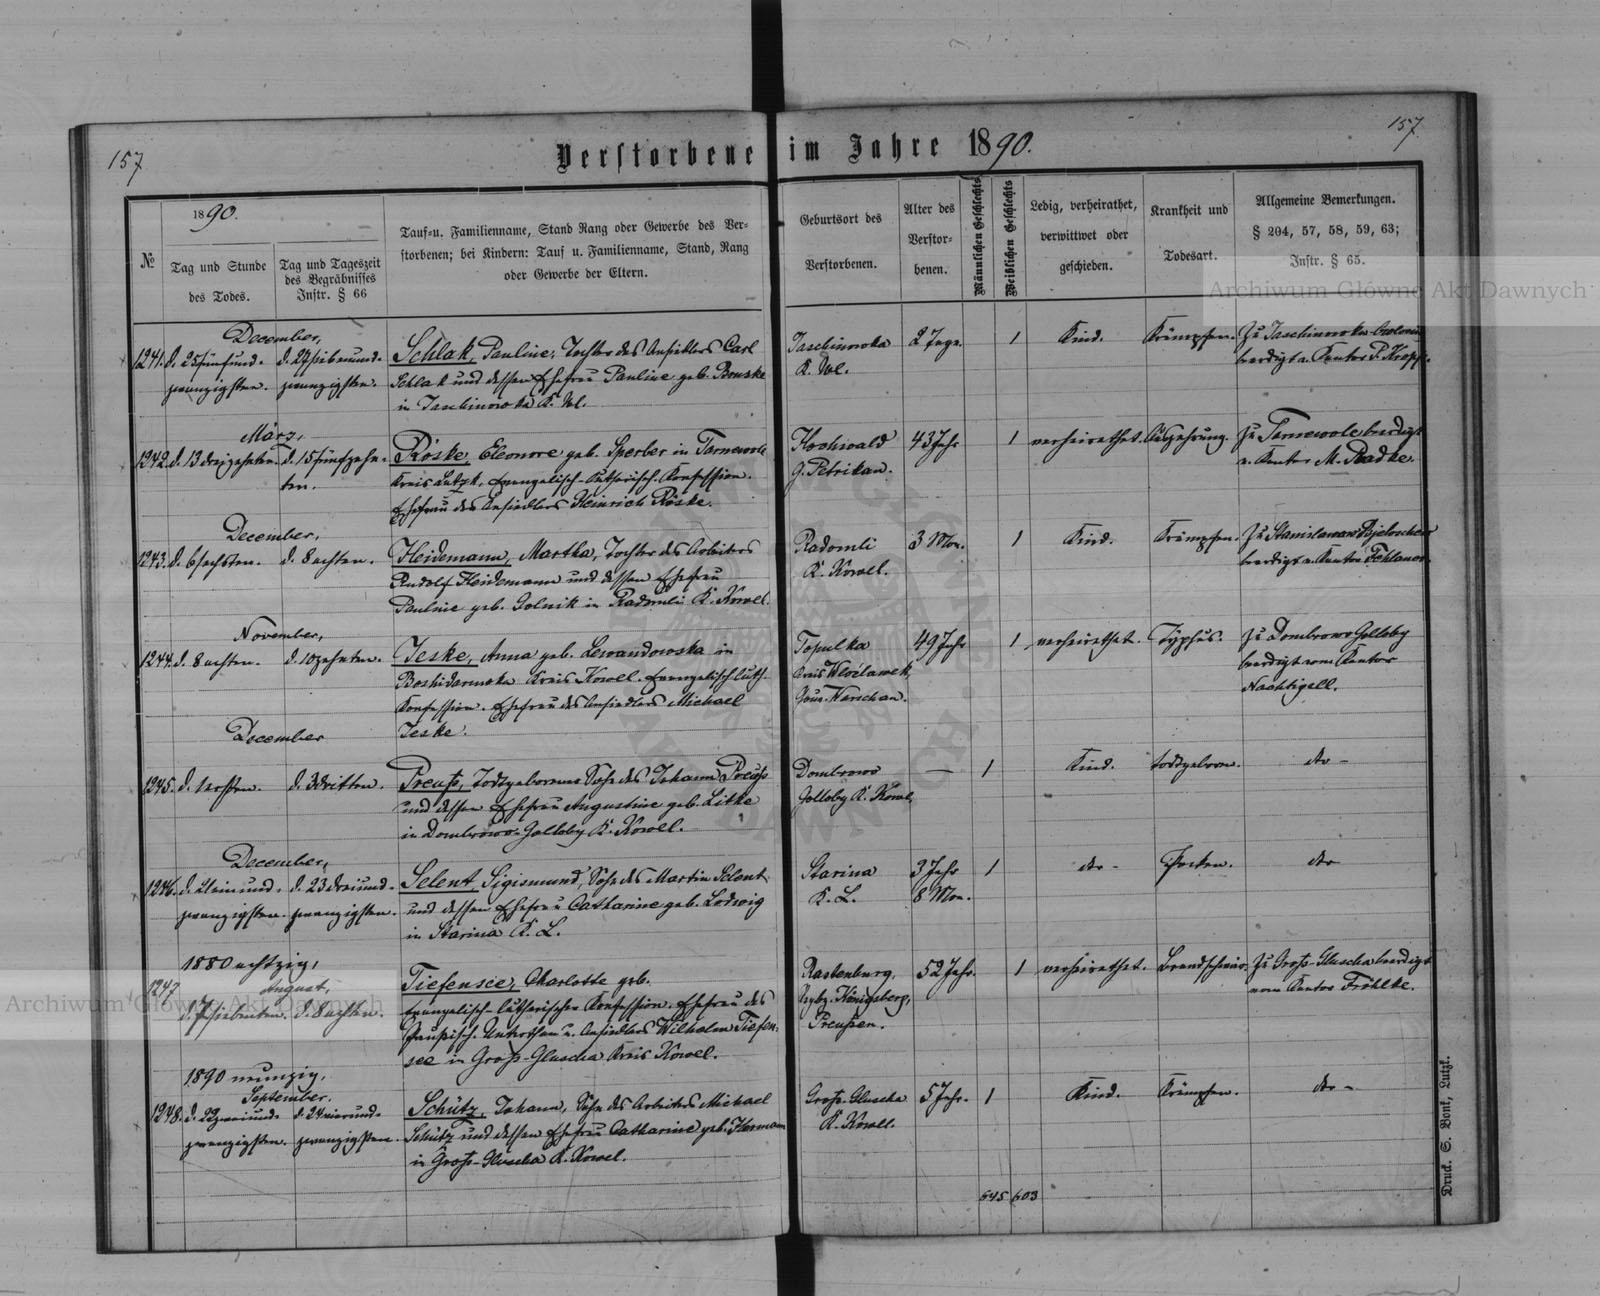 157
157
Verstorbene im Jahre 1890.
№
1890.
Tag und Stunde
des Todes.
Tag und Tageszeit
des Begräbnisses
Instr. § 66
Tauf-u. Familienname, Stand Rang oder Gewerbe des Ver-
storbenen; bei Kindern: Tauf u. Familienname, Stand, Rang
oder Gewerbe der Eltern.
Geburtsort des
Verstorbenen.
Alter des
Verstor-
benen.
Männlichen Geschlechts
Weiblichen Geschlechts
Ledig, verheirathet,
verwittwet oder
geschieden.
Krankheit und
Todesart.
Allgemeine Bemerkungen.
§ 204, 57, 58, 59, 63;
Instr. § 65.
Archiwum Główne Akt Dawnych
December,
1241. d. 25 fünfund- d. 27 siebenund-
zwanzigsten. zwanzigsten.
Schlak, Pauline, Tochter des Ansiedlers Carl
Schlak und dessen Ehefrau Pauline geb. Bonske
in Jaschinowka K. Wl.
Jaschinowka
K. Wl.
2 Tage. 1 Kind. Krämpfen.
beerdigt v. Kantor P. Kropp.
März,
1242. d. 13 dreizehnten. d. 15 fünfzehn-
ten.
Röske, Eleonore geb. Sperber in Tarnewole
Kreis Lutzk, Evangelisch-Lutherisch. Konfession.
Ehefrau des Ansiedlers Heinrich Röske.
Kochwald
G. Petrikau.
43 Jahr 1 verheirathet. Auszehrung. Zu Tarnewole beerdigt
v. Kantor M. Radke.
December,
1243. d. 6 sechsten. d. 8 achten.
Heidemann, Martha, Tochter des Arbeiters
Rudolf Heidemann und dessen Ehefrau
Pauline geb. Golnik in Radomli K. Kowel.
Radomli
K. Kowel.
3 Mon. 1 Kind. Krämpfen.
beerdigt v. Kantor
November,
1244. d. 8 achten. d. 10 zehnten.
Jeske, Anna geb. Lewandowska in
Boshidarowka Kreis Kowel. Evangelisch luth.
Konfession. Ehefrau des Ansiedlers Michael
Jeske.
Topulka
Kreis Wloclawek,
Gouv. Warschau.
49 Jahr 1 verheirathet. Typhus. Zu Dombrowo Golloby
beerdigt vom Kantor
Nachtigall.
December
1245. d. 1 ersten. d. 3 dritten.
Preuß, Todtgeborener Sohn des Johann Preuß
und dessen Ehefrau Augustine geb. Litke
in Dombrowo-Golloby K. Kowel.
Dombrowo
Golloby K. Kowel,
— 1 Kind. todtgeboren. dto -
December,
1246. d. 21 einund- d. 23 dreiund-
zwanzigsten. zwanzigsten.
Selent, Sigismund, Sohn des Martin Selent
und dessen Ehefrau Catharine geb. Lodwig
in Starina K. L.
Starina
K. L.
3 Jahr
8 Mon.
1 dto - Pocken. dto
1880 achtzig,
August,
1247
d. 7 siebenten. d. 8 achten.
Archiwum Główne Akt Dawnych
Tiefensee, Charlotte geb.
Evangelisch-lutherischer Konfession. Ehefrau des
Preußisch. Unterthan u. Ansiedlers Wilhelm Tiefen-
see in Groß-Gluscha Kreis Kowel.
Rastenburg,
Rgbz. Königsberg,
Preußen.
52 Jahr. 1 verheirathet. Zu Groß-Gluscha beerdigt
vom Kantor Fröhlke.
1890 neunzig,
September.
1248. d. 22 zweiund- d. 24 vierund-
zwanzigsten. zwanzigsten.
Schütz, Johann, Sohn des Arbeiters Michael
Schütz und dessen Ehefrau Catharine geb. Hermann
in Groß-Gluscha K. Kowel.
Groß-Gluscha
K. Kowel.
5 Jahr. 1 Kind. Krämpfen. dto -
645 603
Druck. S. Bonk, Lutzk.